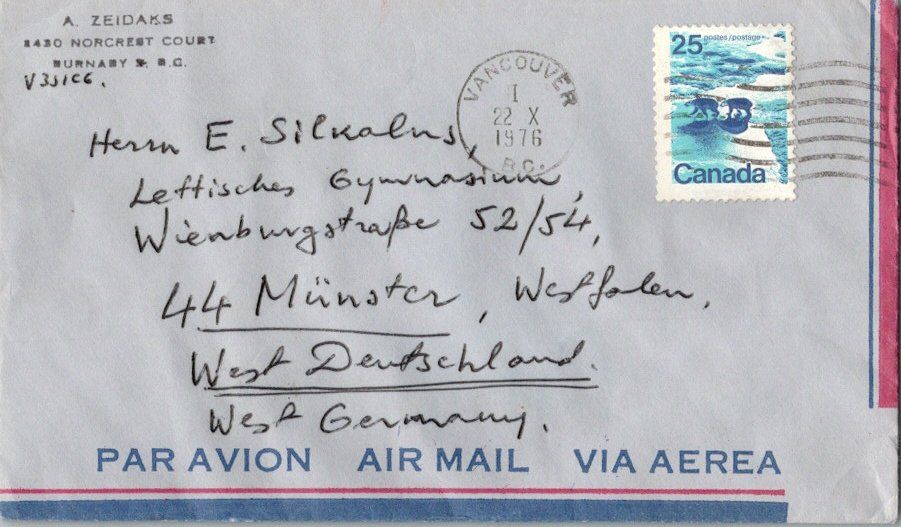 A. ZEIDAKS
2430 NORCREST COURT
BURNABY 2, B.C.
V3J1C6.
VANCOUVER
I
22 X
1976
B.C.
25 postes/postage
Canada
Herrn E. Silkalns,
Lettisches Gymnasium,
Wienburgstraße 52/54,
44 Münster, Westfalen.
West Deutschland.
West Germany.
PAR AVION AIR MAIL VIA AEREA